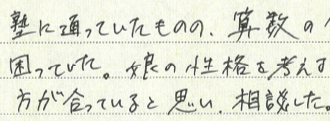 塾に通っていたものの、算数の
困っていた。娘の性格を考えす
方が合っていると思い、相談した。